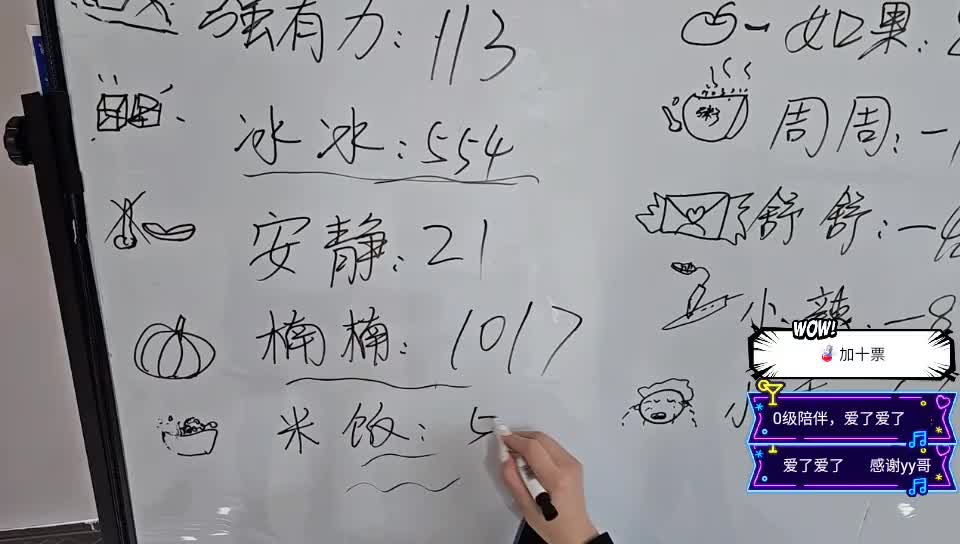 强有力: 113
冰冰: 554
安静: 21
楠楠: 1017
米饭: 5
如果:
粥
周周: -1
舒舒: -4
小辣: -8
小
WOW!
加十票
0级陪伴，爱了爱了
爱了爱了 感谢yy哥